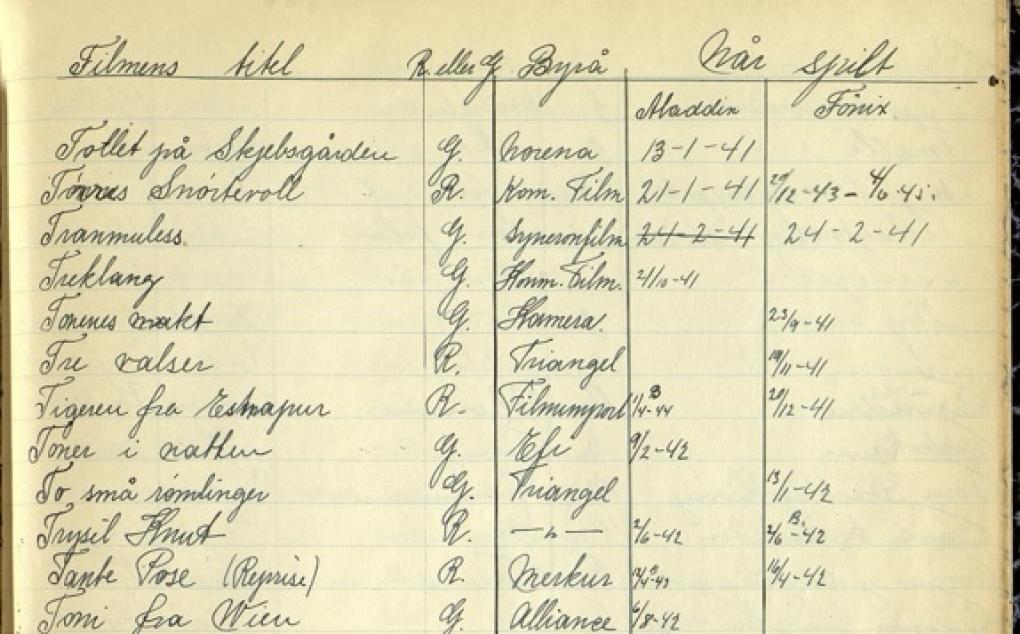 Filmens titel R. eller G Byrå Når spilt
Aladdin Fönix
Tottet på Skjebsgården G. Norena 13-1-41
Törres Snörtevoll R. Kom. Film 21-1-41 29/12-43 - 4/6-45.
Tranmuless G. Syncronfilm 24-2-41 24-2-41
Treklang G. Komm. Film. 21/10-41
Tonenes makt G. Kamera. 23/9-41
Tre valser R. Triangel /11-41
Tigeren fra Eschapur R. Filmimport 1/4-44 B 20/12-41
Toner i natten G. Efi 9/2-42
To små römlinger G. Triangel 13/1-42
Trysil Knut R. -"- 2/6-42 2/6-42 B.
Tante Pose (Reprise) R. Merkur 16/4-42
Toni fra Wien G. Alliance 6/8-42